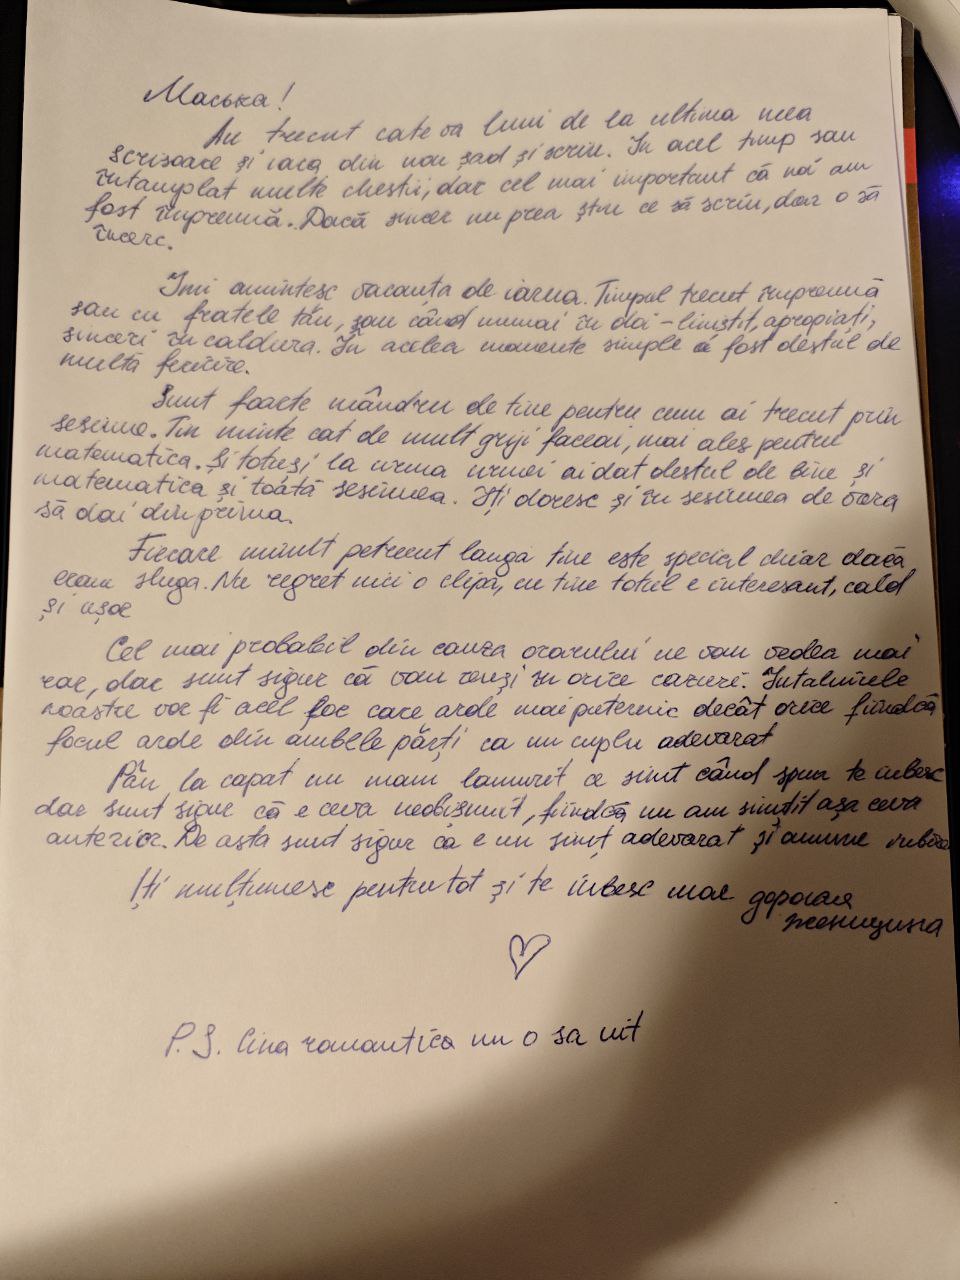 Маська!
Au trecut cateva luni de la ultima mea
scrisoare și iacă din nou șad și scriu. In acel timp sau
întamplat multe chestii, dar cel mai important că noi am
fost împreună. Dacă sincer nu prea știu ce să scriu, dar o să
încerc.
Imi amintesc vacanța de iarna. Timpul trecut împreună
sau cu fratele tău, sau când numai în doi - liniștit, apropiați,
sinceri în caldura. În acelea momente simple a fost destul de
multă fericire.
Sunt foarte mândru de tine pentru cum ai trecut prin
sesiune. Țin minte cat de mult griji faceai, mai ales pentru
matematica. Și totuși la urma urmei ai dat destul de bine și
matematica și toată sesiunea. Îți doresc și în sesiunea de vara
să dai din prima.
Fiecare minut petrecut langa tine este special chiar dacă
eram sluga. Nu regret nici o clipă, cu tine totul e interesant, cald
și ușor
Cel mai probabil din cauza orarului ne vom vedea mai
rar, dar sunt sigur că vom reuși în orice cazuri. Intalnirele
noastre vor fi acel foc care arde mai puternic decât orice fiindcă
focul arde din ambele părți ca un cuplu adevarat
Păn la capat nu mam lamurit ce simt când spun te iubesc
dar sunt sigur că e ceva neobișnuit, fiindcă nu am simțit așa ceva
anterior. De asta sunt sigur că e un simț adevarat și anume iubirea
Iți mulțumesc pentru tot și te iubesc mor дорогая
женщина
P.S. Cina romantica nu o sa uit